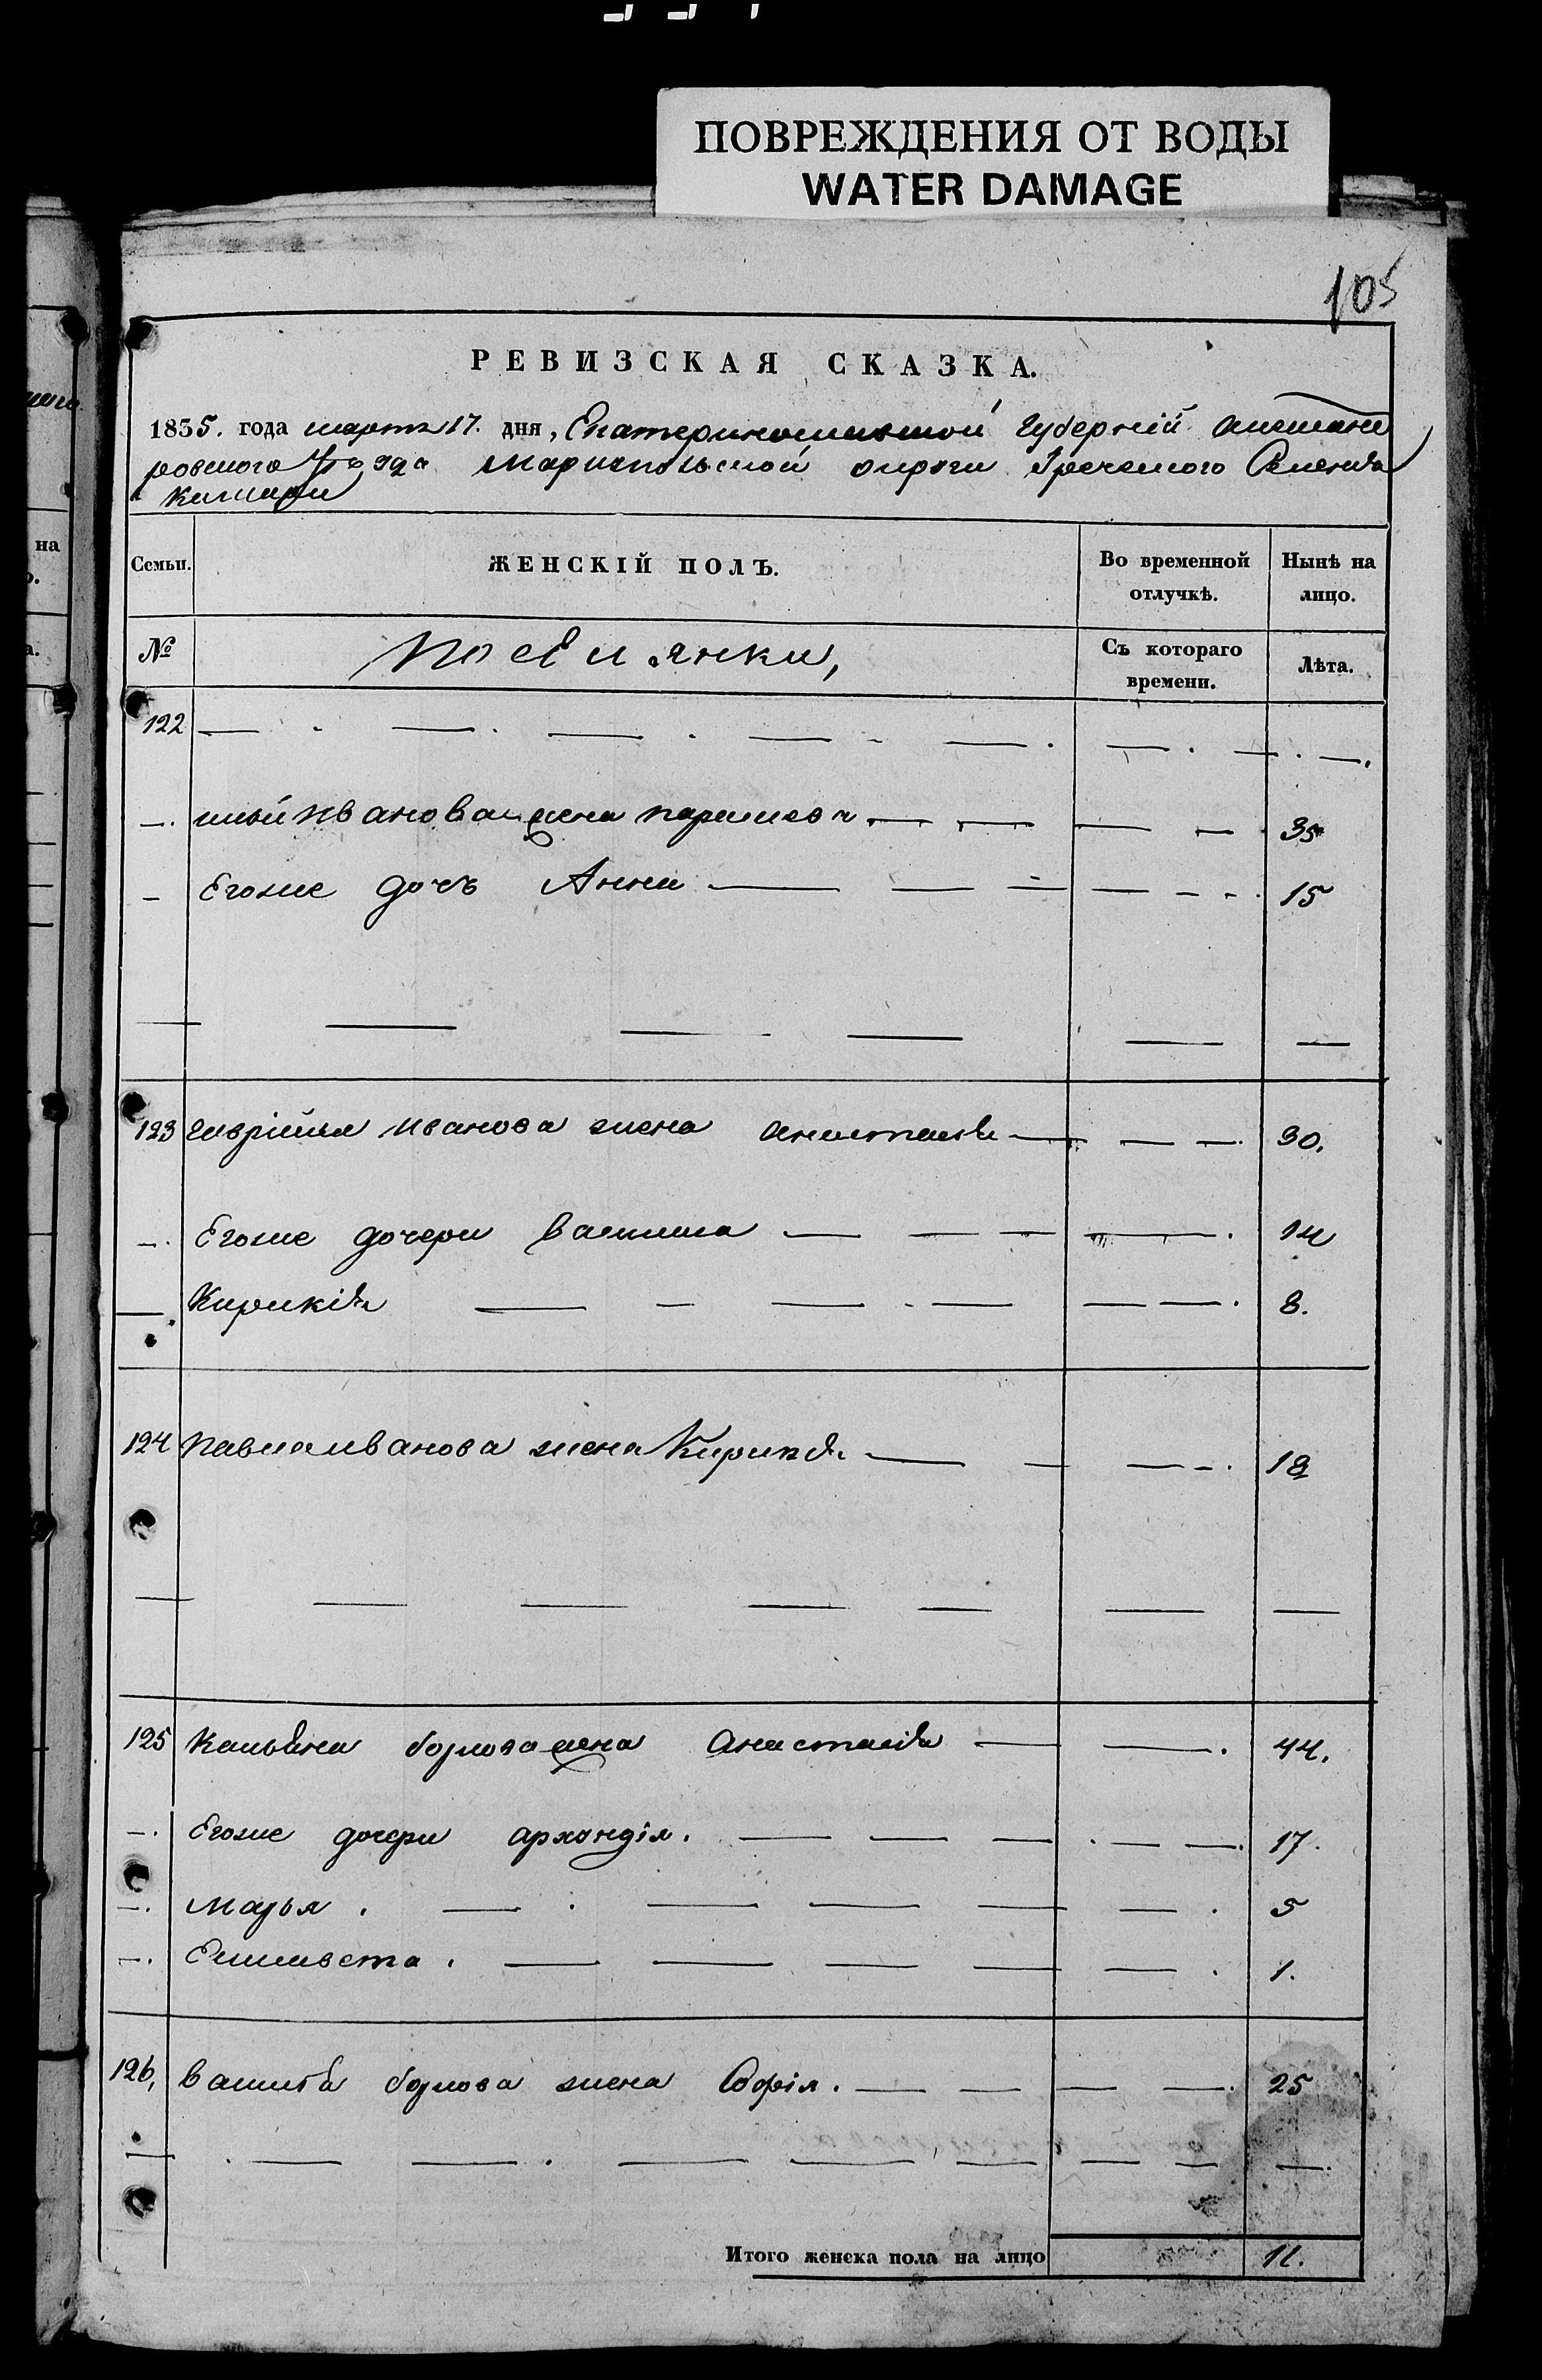 ПОВРЕЖДЕНИЯ ОТ ВОДЫ
WATER DAMAGE
105
РЕВИЗСКАЯ СКАЗКА.
1835. года марта 17. дня, Екатеринославской Губерній Александ
ровского Уезда Мариапольской округи Греческого Селенія
на
Семьи.
ЖЕНСКІЙ ПОЛЪ.
Во временной отлучкѣ.
Нынѣ на лицо.
№
Поселянки,
Съ котораго времени.
Лѣта.
122
Иванова жена 35
Егоже дочь Анна 15
123 Гаврійла Иванова жена Анастасія 30.
Егоже дочери Василиса 14
Кирикія 8.
124 Павла Иванова жена Кирикія 18
125 жена Анастасія 44.
Егоже дочери архондія. 17.
Марья. 5
Елисавета. 1.
126, жена Софія. 25
Итого женска пола на лицо 11.